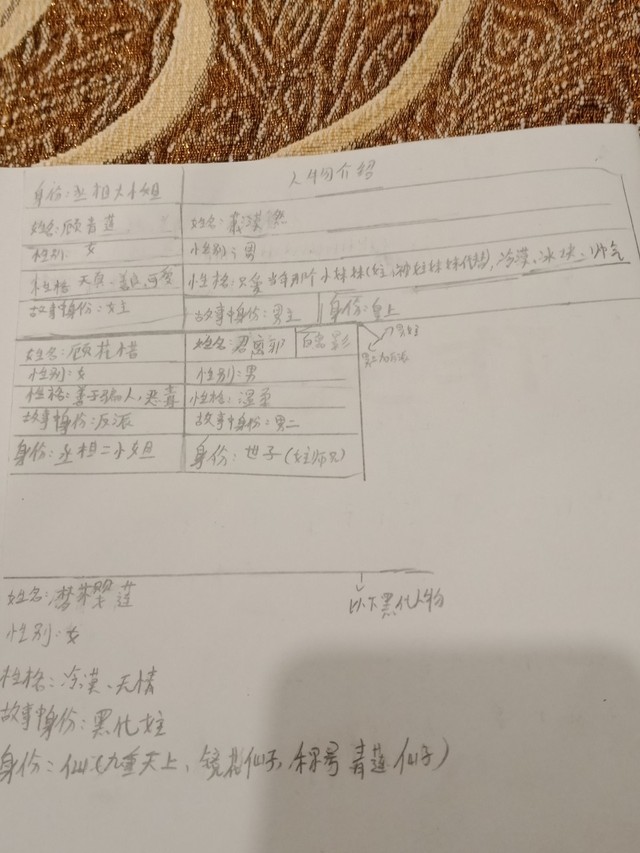 人物介绍
身份:丞相大小姐
姓名:顾青莲
性别:女
性格:天真、善良,可爱
故事中身份:女主
姓名:漠然
性别:男
性格:只爱当年那个小妹妹(女主,称女主妹妹代替),冷漠,冰块,帅气
故事中身份:男主
身份:皇上
姓名:顾惜
性别:女
性格:善于骗人,恶毒
故事中身份:反派
身份:丞相二小姐
姓名:君离邪
性别:男
性格:温柔
故事中身份:男二
身份:世子(女主师兄)
以下黑化人物
姓名:梦樱莲
性别:女
性格:冷漠、无情
故事中身份:黑化女主
身份:仙(九重天上、镜花仙子,称号青莲仙子)